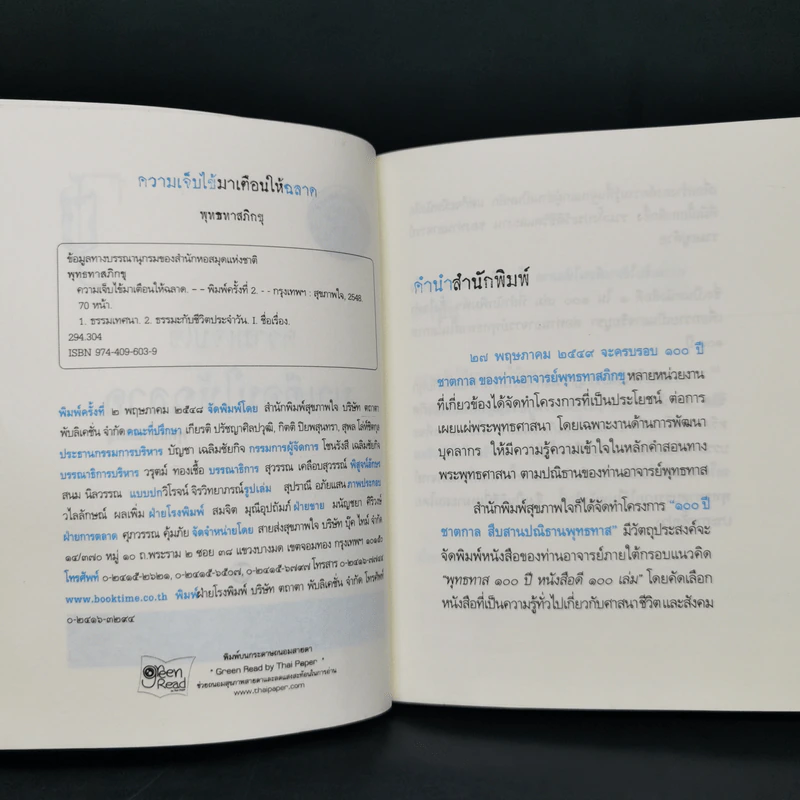 ความเจ็บไข้มาเตือนให้ฉลาด
พุทธทาสภิกขุ
ข้อมูลทางบรรณานุกรมของสำนักหอสมุดแห่งชาติ
พุทธทาสภิกขุ
ความเจ็บไข้มาเตือนให้ฉลาด. -- พิมพ์ครั้งที่ 2. -- กรุงเทพฯ : สุขภาพใจ, 2548.
70 หน้า.
1. ธรรมเทศนา. 2. ธรรมะกับชีวิตประจำวัน. I. ชื่อเรื่อง.
294.304
ISBN 974-409-603-9
พิมพ์ครั้งที่ ๒ พฤษภาคม ๒๕๔๘ จัดพิมพ์โดย สำนักพิมพ์สุขภาพใจ บริษัท ตถาตา
พับลิเคชั่น จำกัด คณะที่ปรึกษา เกียรติ ปรัชญาศิลปวุฒิ, กิตติ ปิยพสุนทรา, สุพล โล่ห์ชิตกุล
ประธานกรรมการบริหาร บัญชา เฉลิมชัยกิจ กรรมการผู้จัดการ โชนรังสี เฉลิมชัยกิจ
บรรณาธิการบริหาร วรุตม์ ทองเชื้อ บรรณาธิการ สุวรรณ เคลือบสุวรรณ์ พิสูจน์อักษร
สนม นิลวรรณ แบบปก วิโรจน์ จิรวิทยาภรณ์ รูปเล่ม สุปราณี อภัยแสน ภาพประกอบ
วไลลักษณ์ ผลเพิ่ม ฝ่ายโรงพิมพ์ สมจิต มุณีอุปถัมภ์ ฝ่ายขาย มนัญชยา ศิริวงษ์
ฝ่ายการตลาด ศุภวรรณ คุ้มภัย จัดจำหน่ายโดย สายส่งสุขภาพใจ บริษัท บุ๊ค ไทม์ จำกัด
๑๔/๓๗๐ หมู่ ๑๐ ถ.พระราม ๒ ซอย ๓๘ แขวงบางมด เขตจอมทอง กรุงเทพฯ ๑๐๑๕๐
โทรศัพท์ ๐-๒๔๑๕-๒๖๒๑, ๐-๒๔๑๕-๖๕๐๗, ๐-๒๔๑๕-๖๗๙๗ โทรสาร ๐-๒๔๑๖-๗๗๔๔
www.booktime.co.th พิมพ์ ฝ่ายโรงพิมพ์ บริษัท ตถาตา พับลิเคชั่น จำกัด โทรศัพท์
๐-๒๔๑๖-๓๒๙๔
green Read
พิมพ์บนกระดาษถนอมสายตา
" Green Read by Thai Paper "
ช่วยถนอมสุขภาพสายตาและลดแสงสะท้อนในการอ่าน
www.thaipaper.com
คำนำสำนักพิมพ์
๒๗ พฤษภาคม ๒๕๔๙ จะครบรอบ ๑๐๐ ปี
ชาตกาล ของท่านอาจารย์พุทธทาสภิกขุ หลายหน่วยงาน
ที่เกี่ยวข้องได้จัดทำโครงการที่เป็นประโยชน์ ต่อการ
เผยแผ่พระพุทธศาสนา โดยเฉพาะงานด้านการพัฒนา
บุคลากร ให้มีความรู้ความเข้าใจในหลักคำสอนทาง
พระพุทธศาสนา ตามปณิธานของท่านอาจารย์พุทธทาส
สำนักพิมพ์สุขภาพใจก็ได้จัดทำโครงการ "๑๐๐ ปี
ชาตกาล สืบสานปณิธานพุทธทาส" มีวัตถุประสงค์จะ
จัดพิมพ์หนังสือของท่านอาจารย์ภายใต้กรอบแนวคิด
"พุทธทาส ๑๐๐ ปี หนังสือดี ๑๐๐ เล่ม" โดยคัดเลือก
หนังสือที่เป็นความรู้ทั่วไปเกี่ยวกับศาสนาชีวิต และสังคม